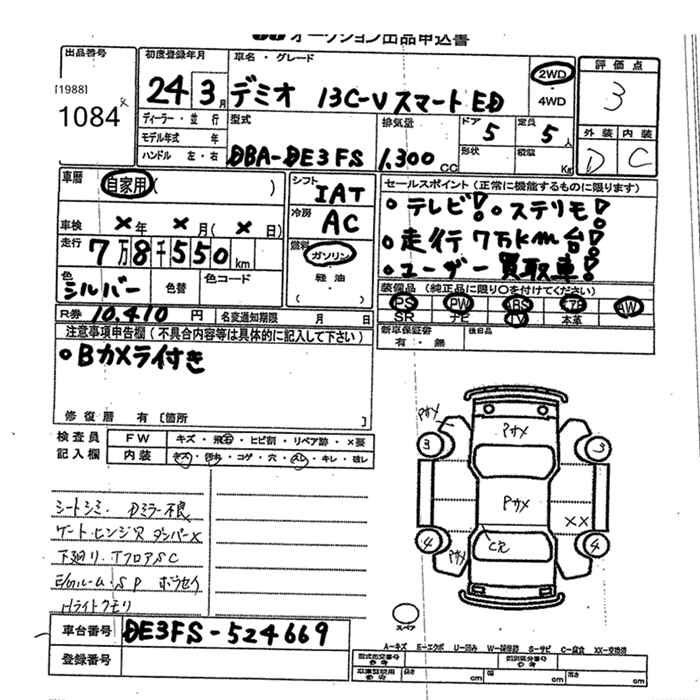 オークション出品申込書
出品番号 初度登録年月 車名・グレード 評価点
[1988]
1084
24 3月 デミオ 13C-Vスマート ED 2WD ・ 4WD 3
ディーラー・並行 型式 排気量 ドア 定員 外装 内装
モデル年式 年 5 5人
ハンドル 左・右 DBA-DE3FS 1,300cc 形状 積載 Kg D C
車歴 自家用( ) シフト IAT セールスポイント(正常に機能するものに限ります)
車検 ×年 ×月(×日) 冷房 AC 。テレビ!。ステリモ!
走行 7万8千550km 燃料 ガソリン 。走行7万km台!
軽油 。ユーザー買取車!
色 シルバー 色替 色コード 装備品(純正品に限り○を付けてください)
PS PW ABS AW
R券 10,410円 名変通知期限 月 日 SR ナビ TV 本革
注意事項申告欄(不具合内容等は具体的に記入して下さい) 新車保証書 後日品
有・無
。Bカメラ付き
修復歴 有[箇所 ]
検査員 FW キズ・飛石・ヒビ割・リペア跡・×要
記入欄 内装 キズ・汚れ・コゲ・穴・スレ・キレ・破レ
Pサメ
Pサメ
3 3
Pサメ
××
C穴
4 4
Pサメ
シートシミ. Dミラー不良
ゲート・ヒンジス ダンパー×
下廻り. TフロアSC
E/Gルーム・SP ボウセイ
Hライトクモリ
スペア
車台番号 DE3FS-524669
登録番号
A-キズ E-エクボ U-凹み W-補修跡 S-サビ C-腐食 XX-交換済
型式指定番号 類別区分番号
参考 参考
長さ cm 幅 cm 高さ cm